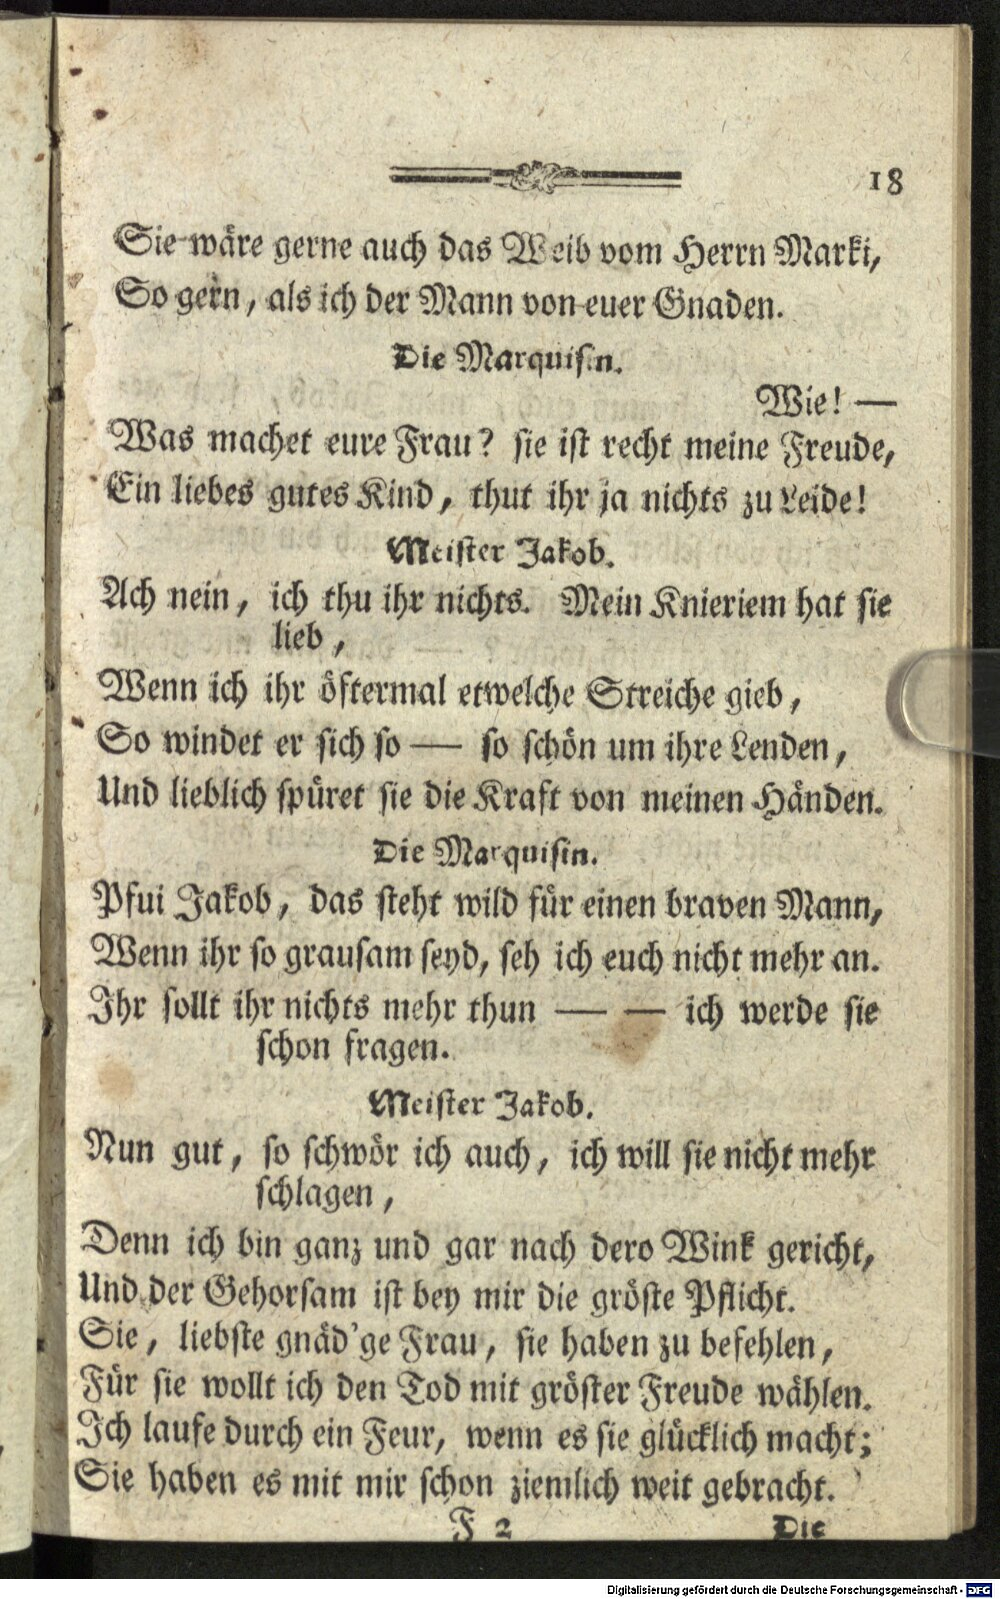 18
Sie wäre gerne auch das Weib vom Herrn Marki,
So gern, als ich der Mann von euer Gnaden.
Die Marquisin.
Wie! —
Was machet eure Frau? sie ist recht meine Freude,
Ein liebes gutes Kind, thut ihr ja nichts zu Leide!
Meister Jakob.
Ach nein, ich thu ihr nichts. Mein Knieriem hat sie
lieb,
Wenn ich ihr öftermal etwelche Streiche gieb,
So windet er sich so — so schön um ihre Lenden,
Und lieblich spüret sie die Kraft von meinen Händen.
Die Marquisin.
Pfui Jakob, das steht wild für einen braven Mann,
Wenn ihr so grausam seyd, seh ich euch nicht mehr an.
Ihr sollt ihr nichts mehr thun — — ich werde sie
schon fragen.
Meister Jakob.
Nun gut, so schwör ich auch, ich will sie nicht mehr
schlagen,
Denn ich bin ganz und gar nach dero Wink gericht,
Und der Gehorsam ist bey mir die gröste Pflicht.
Sie, liebste gnäd'ge Frau, sie haben zu befehlen,
Für sie wollt ich den Tod mit gröster Freude wählen.
Ich laufe durch ein Feur, wenn es sie glücklich macht;
Sie haben es mit mir schon ziemlich weit gebracht.
F 2 Die
Digitalisierung gefördert durch die Deutsche Forschungsgemeinschaft - DFG